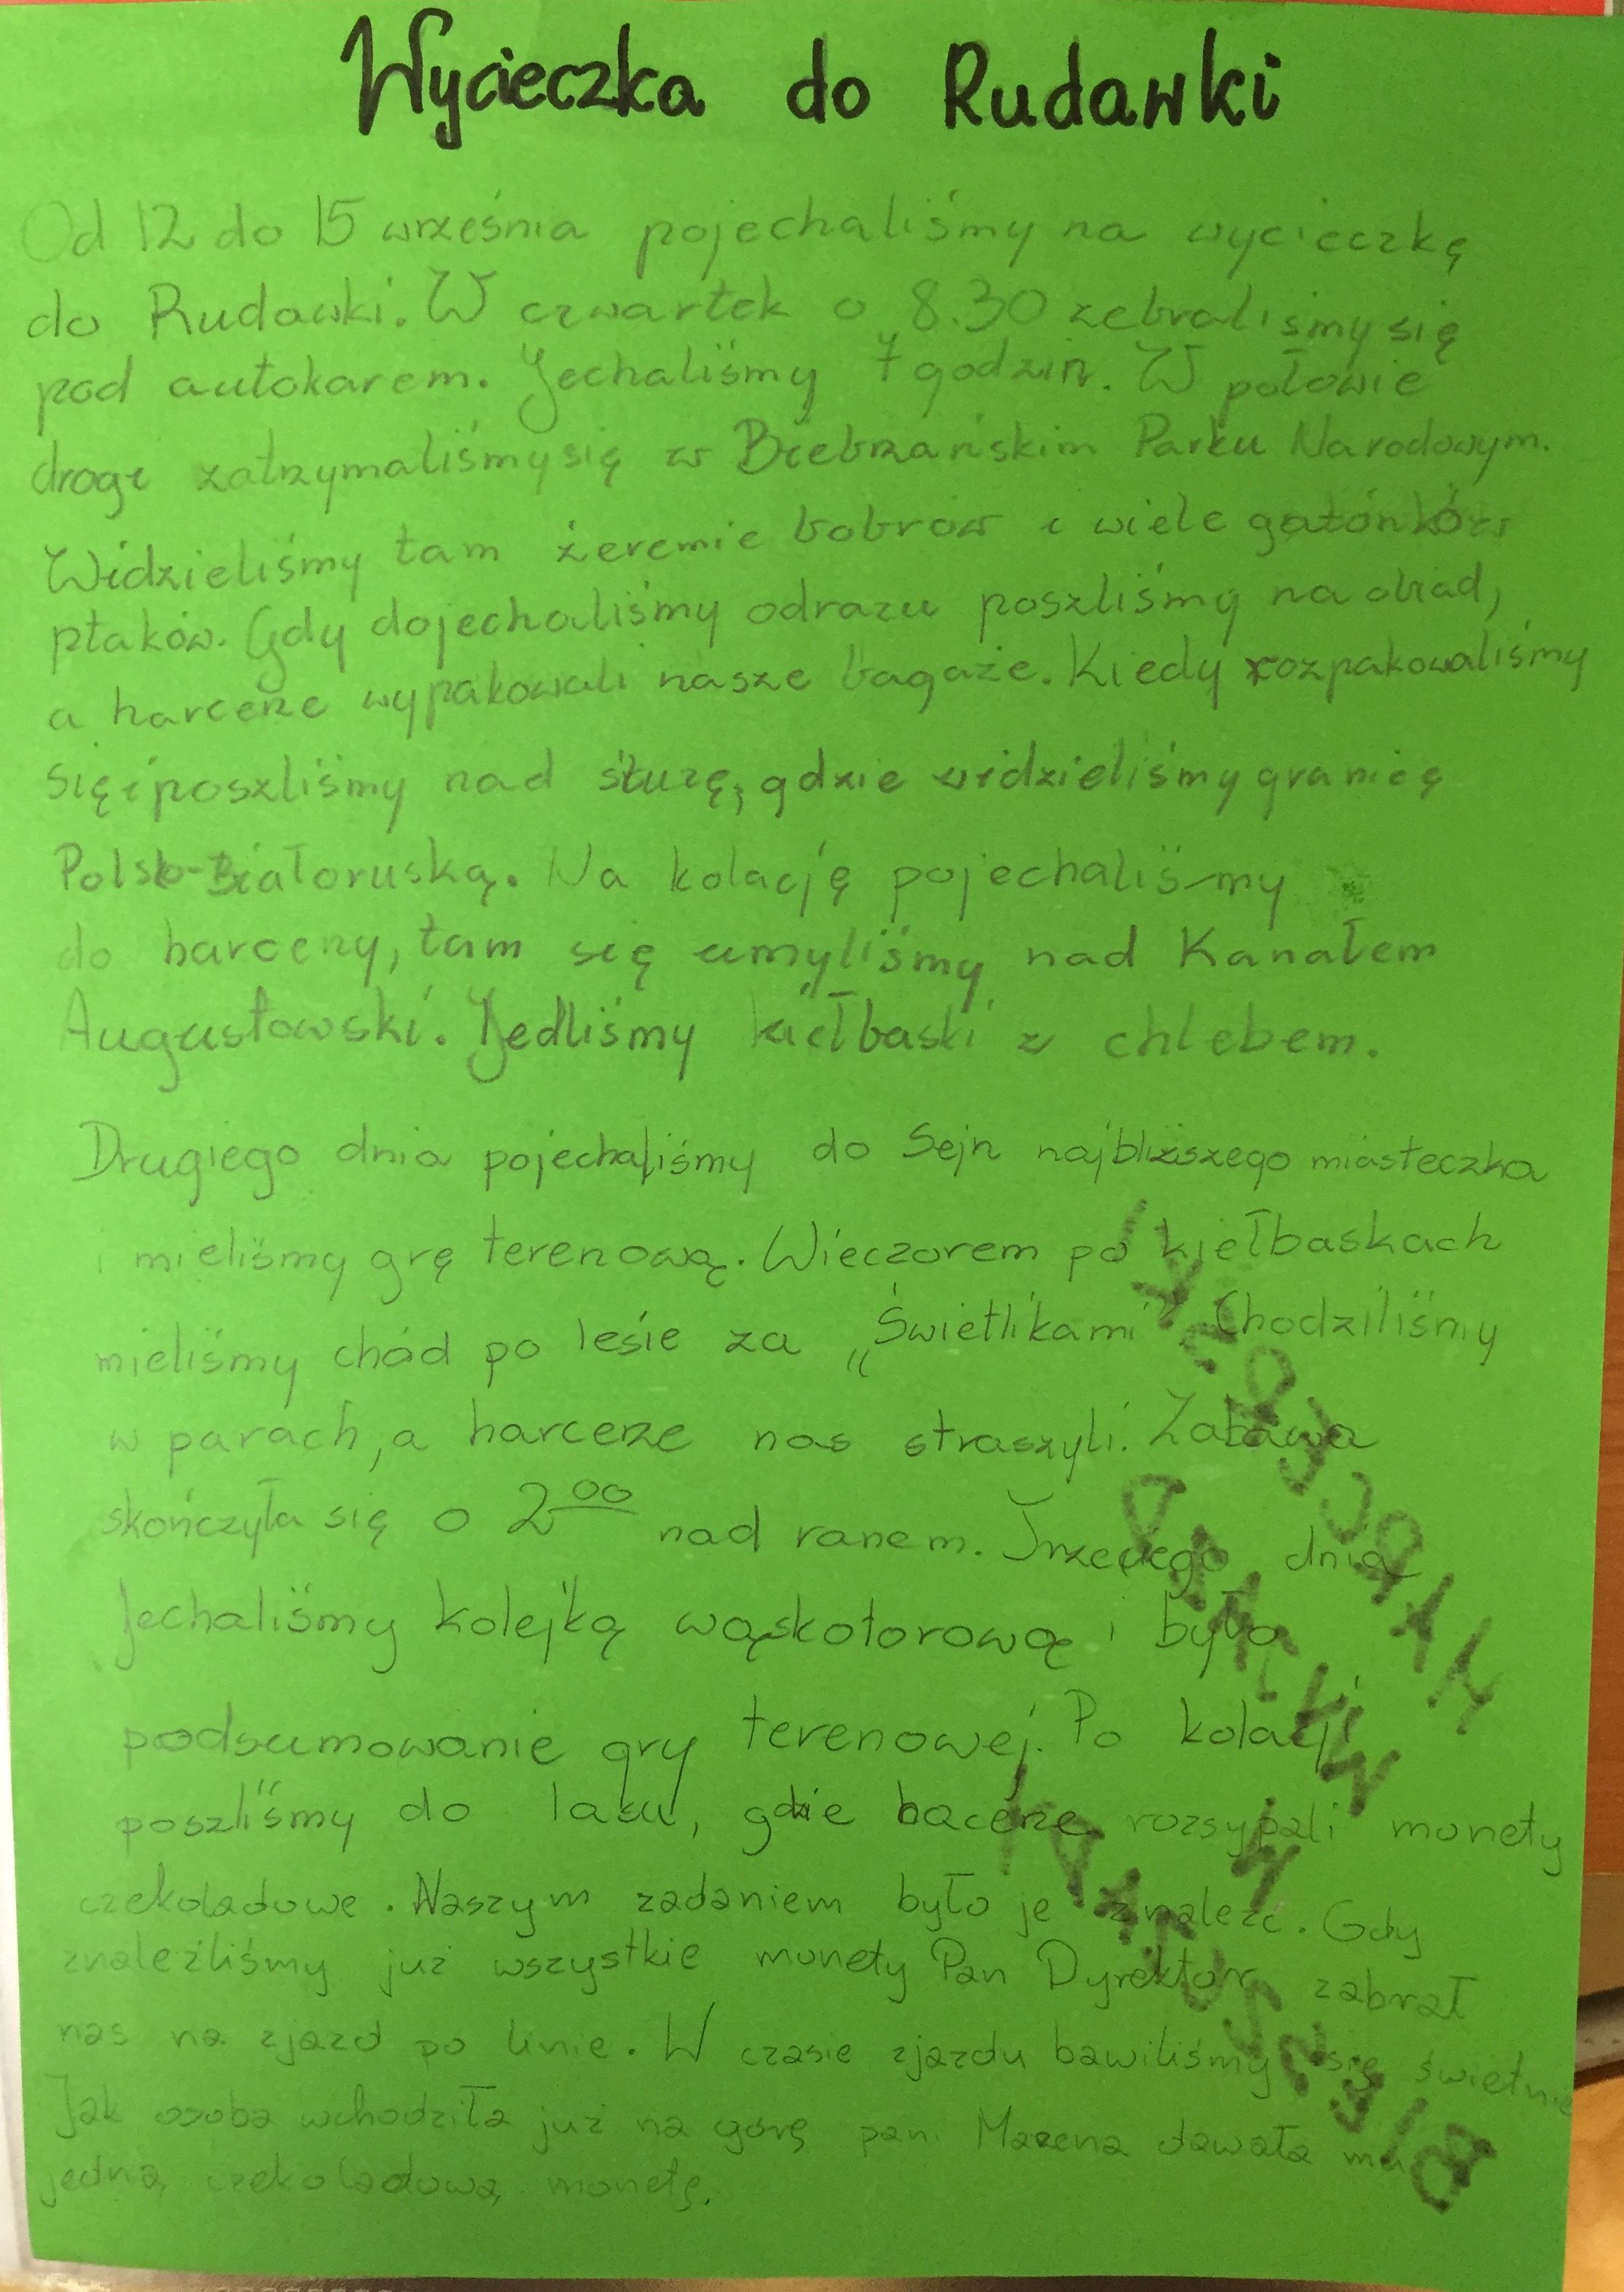 Wycieczka do Rudawki
Od 12 do 15 września pojechaliśmy na wycieczkę
do Rudawki. W czwartek o 8.30 zebraliśmy się
pod autokarem. Jechaliśmy 7 godzin. W połowie
drogi zatrzymaliśmy się w Biebrzańskim Parku Narodowym.
Widzieliśmy tam żeremie bobrów i wiele gatónków
ptaków. Gdy dojechaliśmy odrazu poszliśmy na obiad,
a harcerze wypakowali nasze bagaże. Kiedy rozpakowaliśmy
się i poszliśmy nad śluzę, gdzie widzieliśmy granicę
Polsko-Białoruską. Na kolację pojechaliśmy
do harcerzy, tam się umyliśmy nad Kanałem
Augustowski. Jedliśmy kiełbaski z chlebem.
Drugiego dnia pojechaliśmy do Sejn najbliższego miasteczka
i mieliśmy grę terenową. Wieczorem po kiełbaskach
mieliśmy chód po lesie za „Świetlikami" Chodziliśmy
w parach, a harcerze nas straszyli. Zabawa
skończyła się o 2 00 nad ranem. Trzeciego dnia
jechaliśmy kolejką wąskotorową i było
podsumowanie gry terenowej. Po kolacji
poszliśmy do lasu, gdzie hacerze rozsypali monety
czekoladowe. Naszym zadaniem było je znaleźć. Gdy
znaleźliśmy już wszystkie monety Pan Dyrektor zabrał
nas na zjazd po linie. W czasie zjazdu bawiliśmy się świetnie
Jak osoba wchodziła już na górę pani Marzena dawała mu
jedną czekoladową monetę.